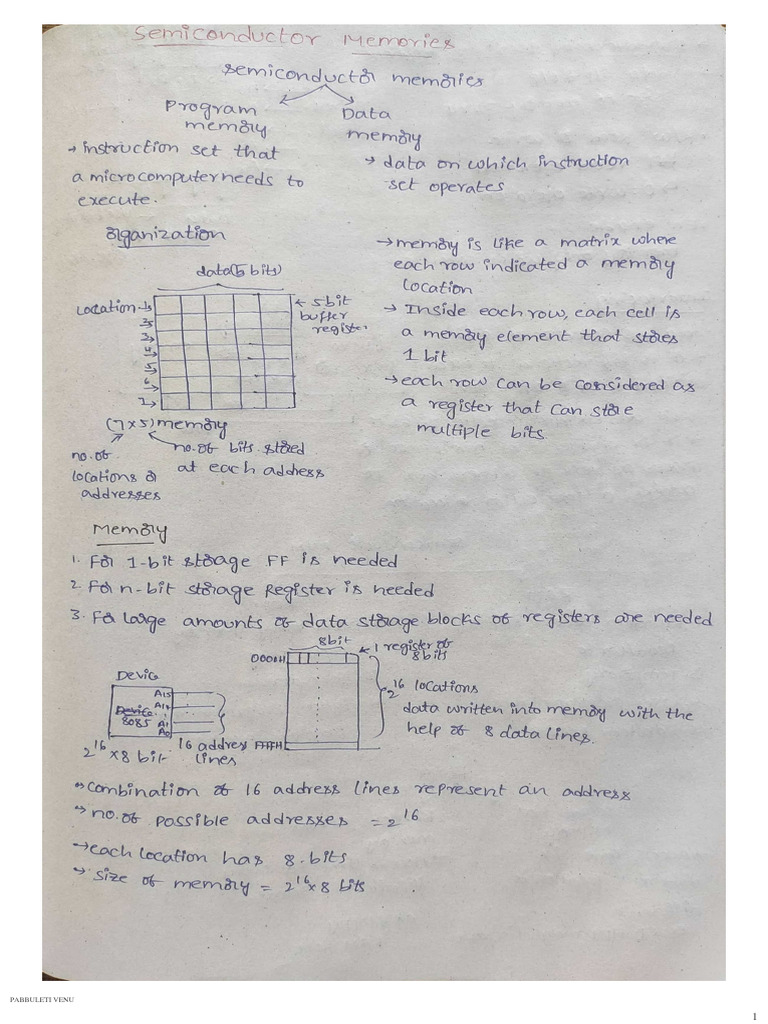 Semiconductor Memories
Semiconductor memories
Program memory
Data memory
→ instruction set that
a microcomputer needs to
execute.
→ data on which instruction
set operates
Organization
data(5 bits)
Location-1→
2→
3→
4→
5→
6→
7→
← 5 bit
buffer
register
(7 x 5) memory
no. of
locations or
addresses
no. of bits stored
at each address
→ memory is like a matrix where
each row indicated a memory
location
→ Inside each row, each cell is
a memory element that stores
1 bit
→ each row can be considered as
a register that can store
multiple bits
Memory
1. For 1-bit storage FF is needed
2. For n-bit storage Register is needed
3. For large amounts of data storage blocks of registers are needed
Device
8085
A15
A14
A1
A0
2^16 x 8 bit
16 address
lines
8bit
0000H
FFFFH
← 1 register of
8bits
2^16 locations
data written into memory with the
help of 8 data lines.
→ combination of 16 address lines represent an address
→ no. of possible addresses = 2^16
→ each location has 8 bits
→ size of memory = 2^16 x 8 bits
PABBULETI VENU
1